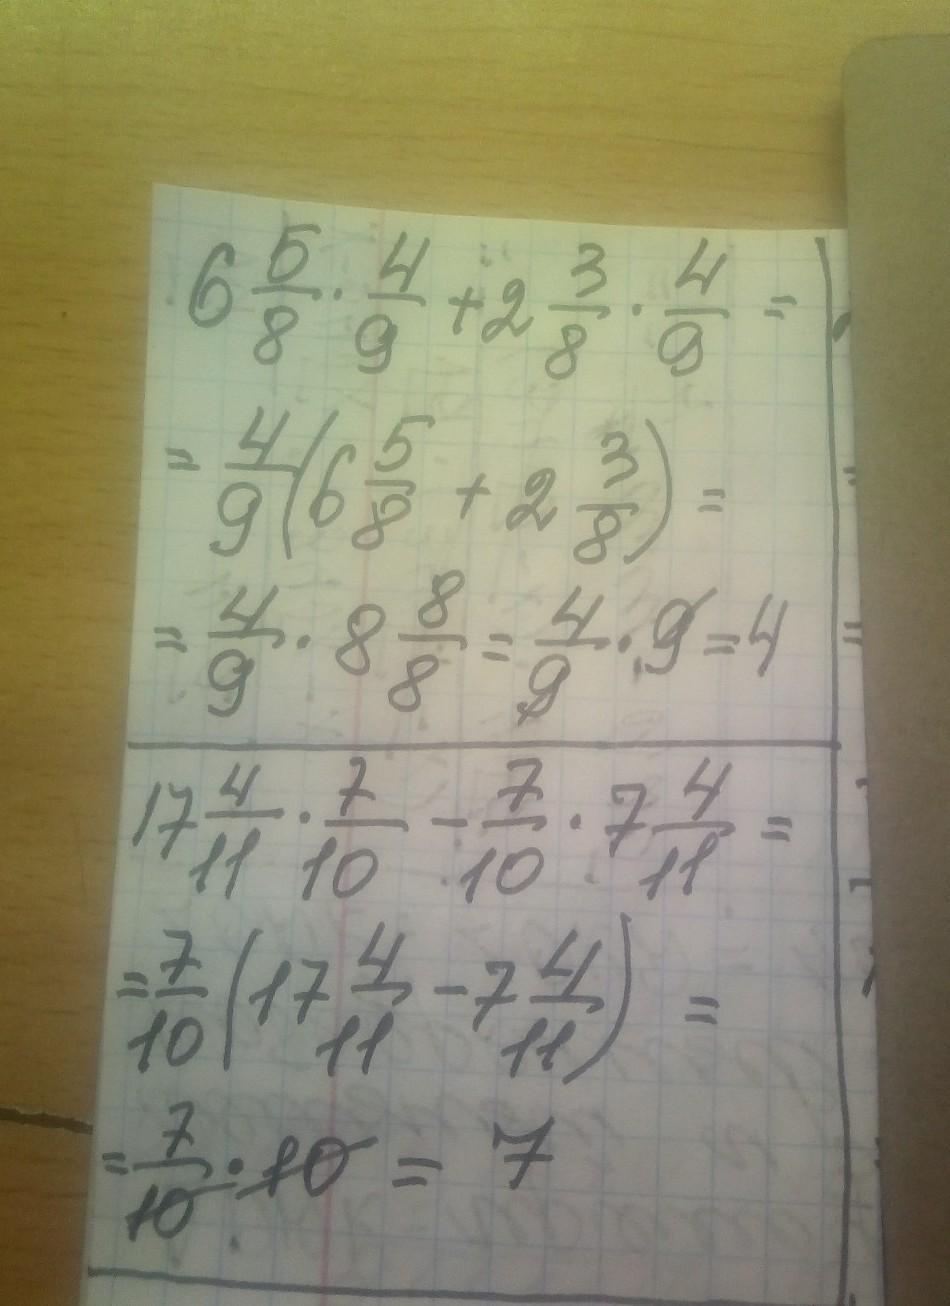 6 5/8 · 4/9 + 2 3/8 · 4/9 =
= 4/9 (6 5/8 + 2 3/8) =
= 4/9 · 8 8/8 = 4/9 · 9 = 4
17 4/11 · 7/10 - 7/10 · 7 4/11 =
= 7/10 (17 4/11 - 7 4/11) =
= 7/10 · 10 = 7